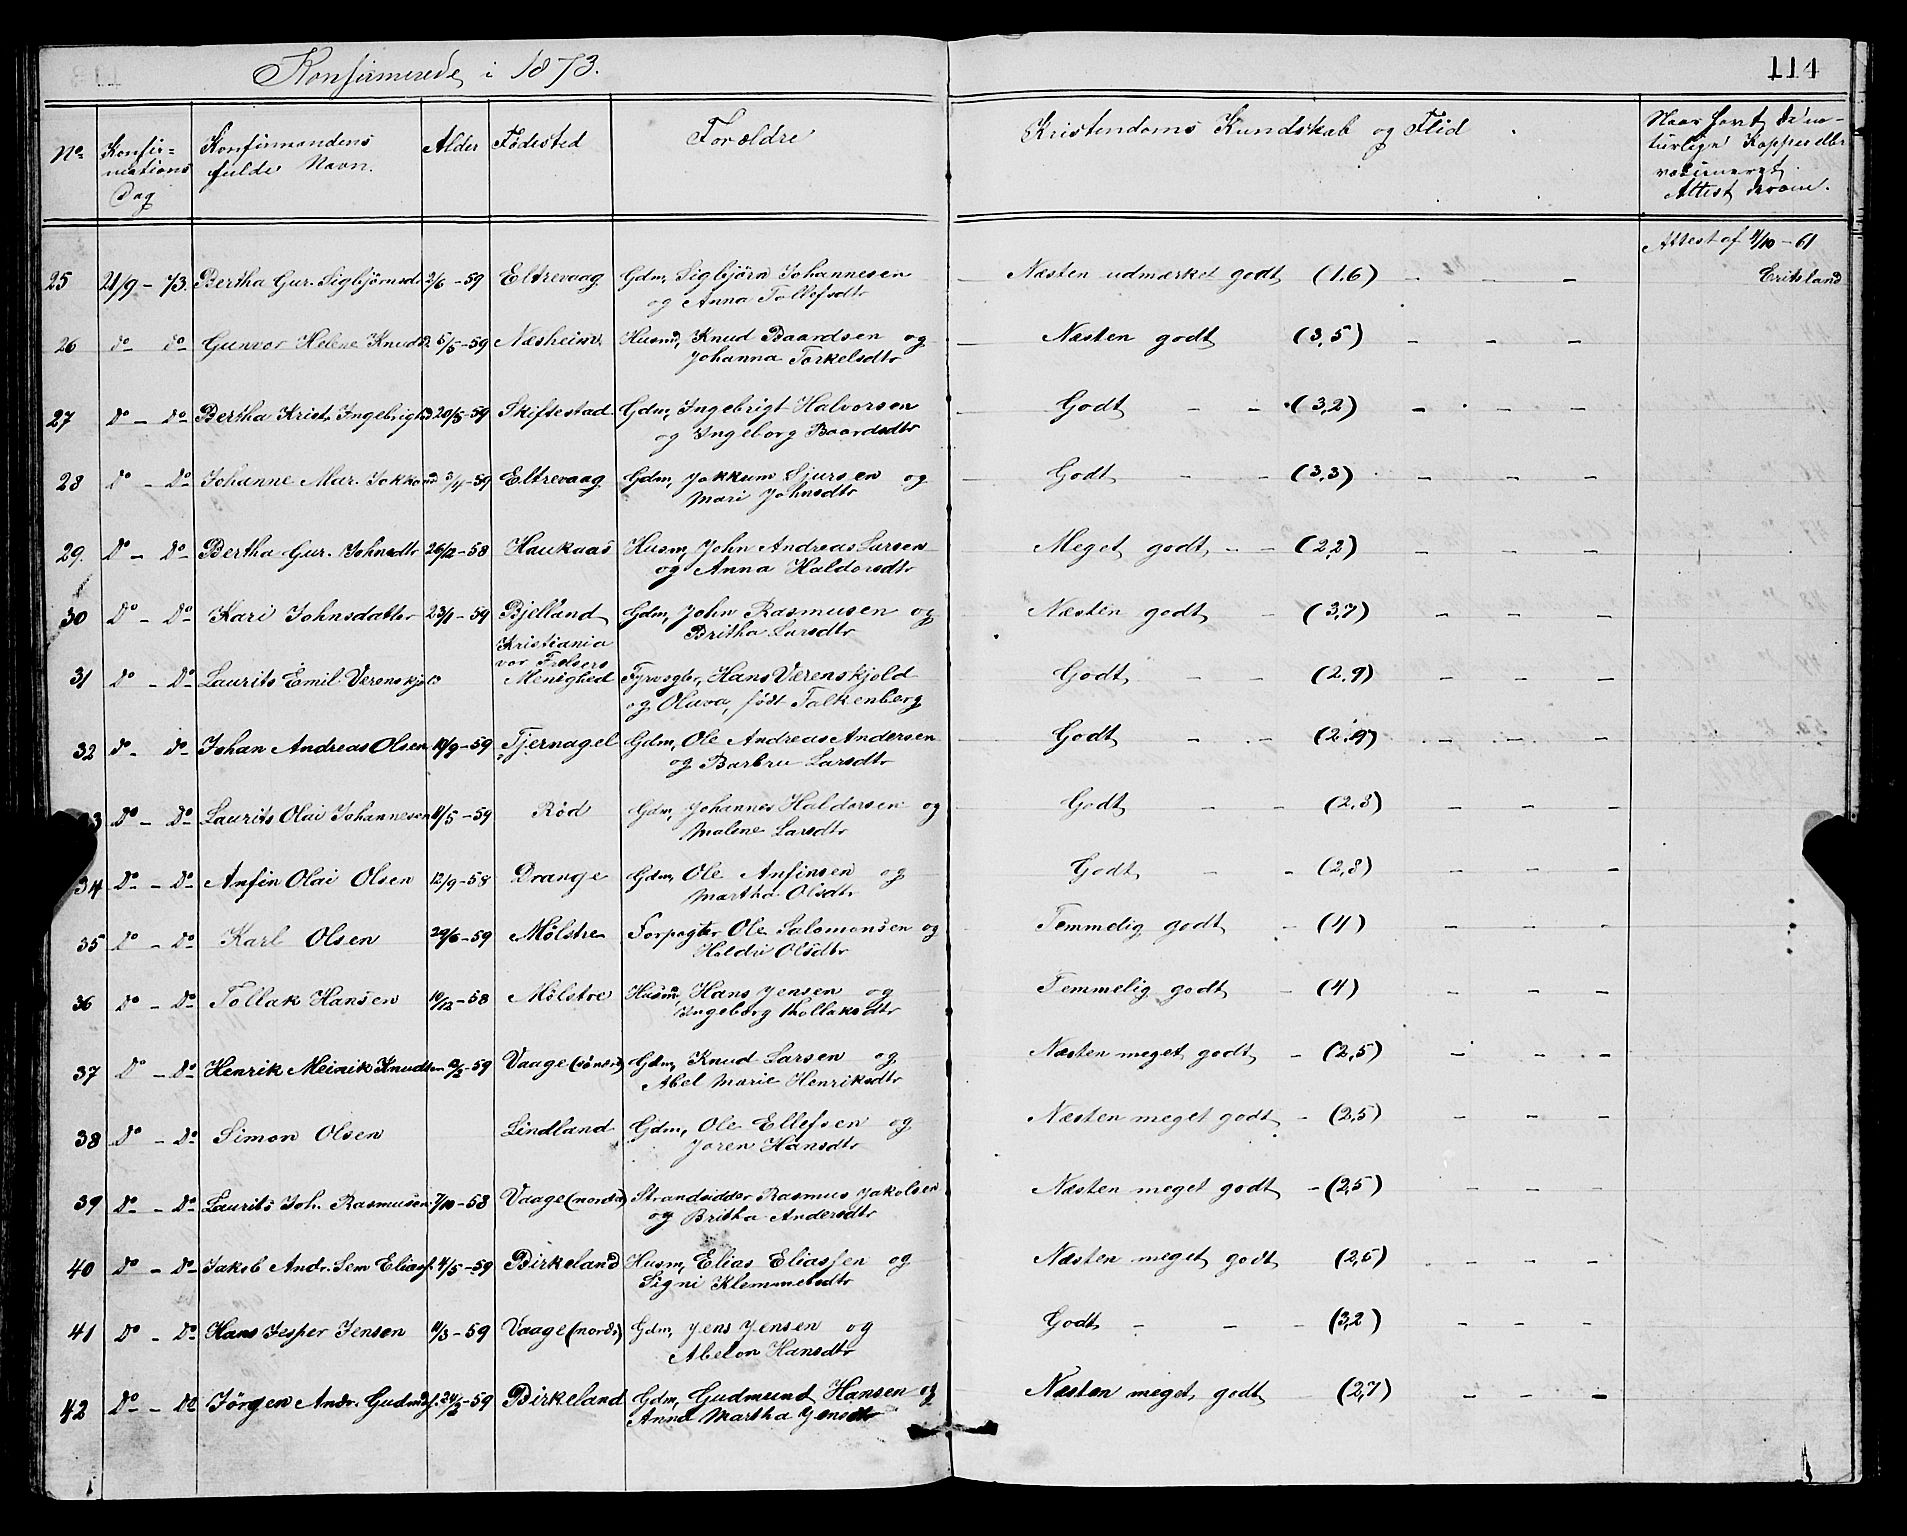 Konfirmerede i 1873.
114
No. Konfir=mations Dag Konfirmandens fulde Navn. Alder Fødested Forældre Kristendoms Kundskab og Flid. Naar havt de na-turlige Kopper eller vaccineret. Attest derom.
Attest af 11/10-61
25 21/9-73. Bertha Gur. Sigbjörnsdr 2/6-59 Eltrevaag Gdm, Sigbjörn Johannesen Næsten udmærket godt (1,6) - - - -
og Anna Tollefsdtr
26 do do Gunvor Helene Knudsd. 5/5-59 Næsheim Husmd, Knud Baardsen og Næsten godt (3,5) - - -
Johanna Torkelsdtr
27 Do - Do Bertha Krist. Ingebrigtsd 20/5-59 Skiftestad Gdm, Ingebrigt Halvorsen Godt - - (3,2) - - - -
og Ingeborg Baardsdtr
28 Do - Do Johanne Mar. Jokkumsd 3/4-59 Eltrevaag Gdm, Jokkum Sjursen og Godt - - (3,3) - - - -
Mari Johnsdtr
29. Do - Do Bertha Gur. Johnsdtr 26/12-58 Haukaas Husm, John Andreas Larsen Meget godt - - (2,2) - - - -
og Anna Haldorsdtr
30 Do - Do Kari Johnsdatter 23/1-59 Bjelland Gdm, John Rasmusen og Næsten godt - (3,7) - - -
Britha Larsdtr
Kristiania
vor Frelsers
31 Do - Do Laurits Emil Verenskjold Menighed Fyrvogter, Hans Verenskjold Godt - - (2,9) - - -
og Oluva, født Falkenberg
32 do do Johan Andreas Olsen 19/9-59 Tjernagel Gdm, Ole Andreas Andersen Godt - - (2,9) - - -
og Barbru Larsdtr
33 Do - Do Laurits Olai Johannesen 11/5-59 Röd Gdm, Johannes Haldorsen og Godt - - (2,8) - - -
Malene Larsdtr
34 Do - Do Anfin Olai Olsen 12/9-58 Drange Gdm, Ole Anfinsen og Godt - - (2,8) - - -
Martha Olsdtr
35 Do - Do Karl Olsen 29/6-59 Mölstre Forpagter Ole Salomonsen og Temmelig godt - (4) - - -
Olsdtr
36 Do - Do Tollak Hansen 10/12-58 Mölstre Husmd, Hans Jensen og Temmelig godt - (4) - - -
Ingeborg Thollaksdtr
37 Do - Do Henrik Meinik Knudsen -59 Vaage (söndre) Gdm, Knud Larsen og Næsten meget godt - (2,5) - - -
Abel Marie Henriksdtr
38 Do - Do Simon Olsen Lindland Gdm, Ole Ellefsen og Næsten meget godt - (2,5) - - -
Joren Hansdtr
39 Do - Do Laurits Joh. Rasmusen 7/10-58 Vaage (nordre) Strandsidder Rasmus Jakobsen Næsten meget godt - (2,5) - - -
og Britha Andersdtr
40 Do - Do Jakob Andr. Sem Eliass. 4/5-59 Birkeland Husm, Elias Eliassen og Næsten meget godt (2,5) - - - -
Signi Klemmetsdtr
41 Do - Do Hans Jesper Jensen 11/3-59 Vaage (nordr) Gdm, Jens Jensen og Godt - - - (3,2) - - -
Abelon Hansdtr
42 Do - Do Jörgen Andr. Gudmds. 24/2-59 Birkeland Gdm, Gudmund Hansen og Næsten meget godt - (2,7) - - -
Anna Martha Jensdtr